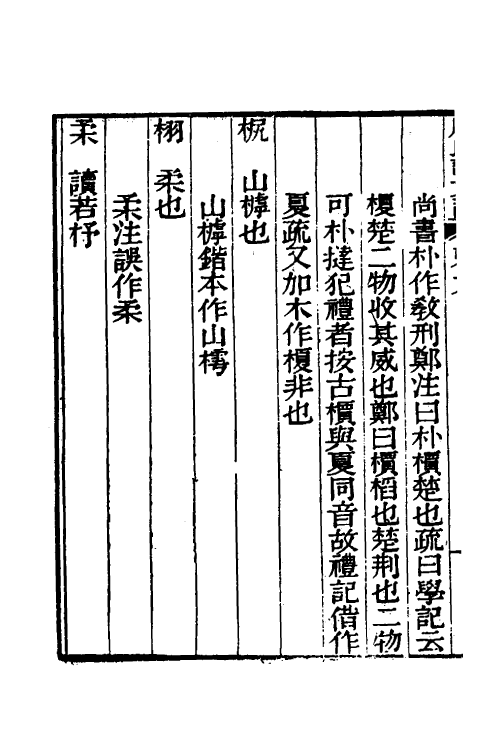 尚書朴作教刑鄭注曰朴檟楚也疏曰學記云
榎楚二物收其威也鄭曰檟稻也楚荆也二物
可朴撻犯禮者按古檟與夏同音故禮記借作
夏疏又加木作榎非也
柅　山樗也
山樗鍇本作山樗
栩　柔也
柔注誤作柔
柔　讀若杼